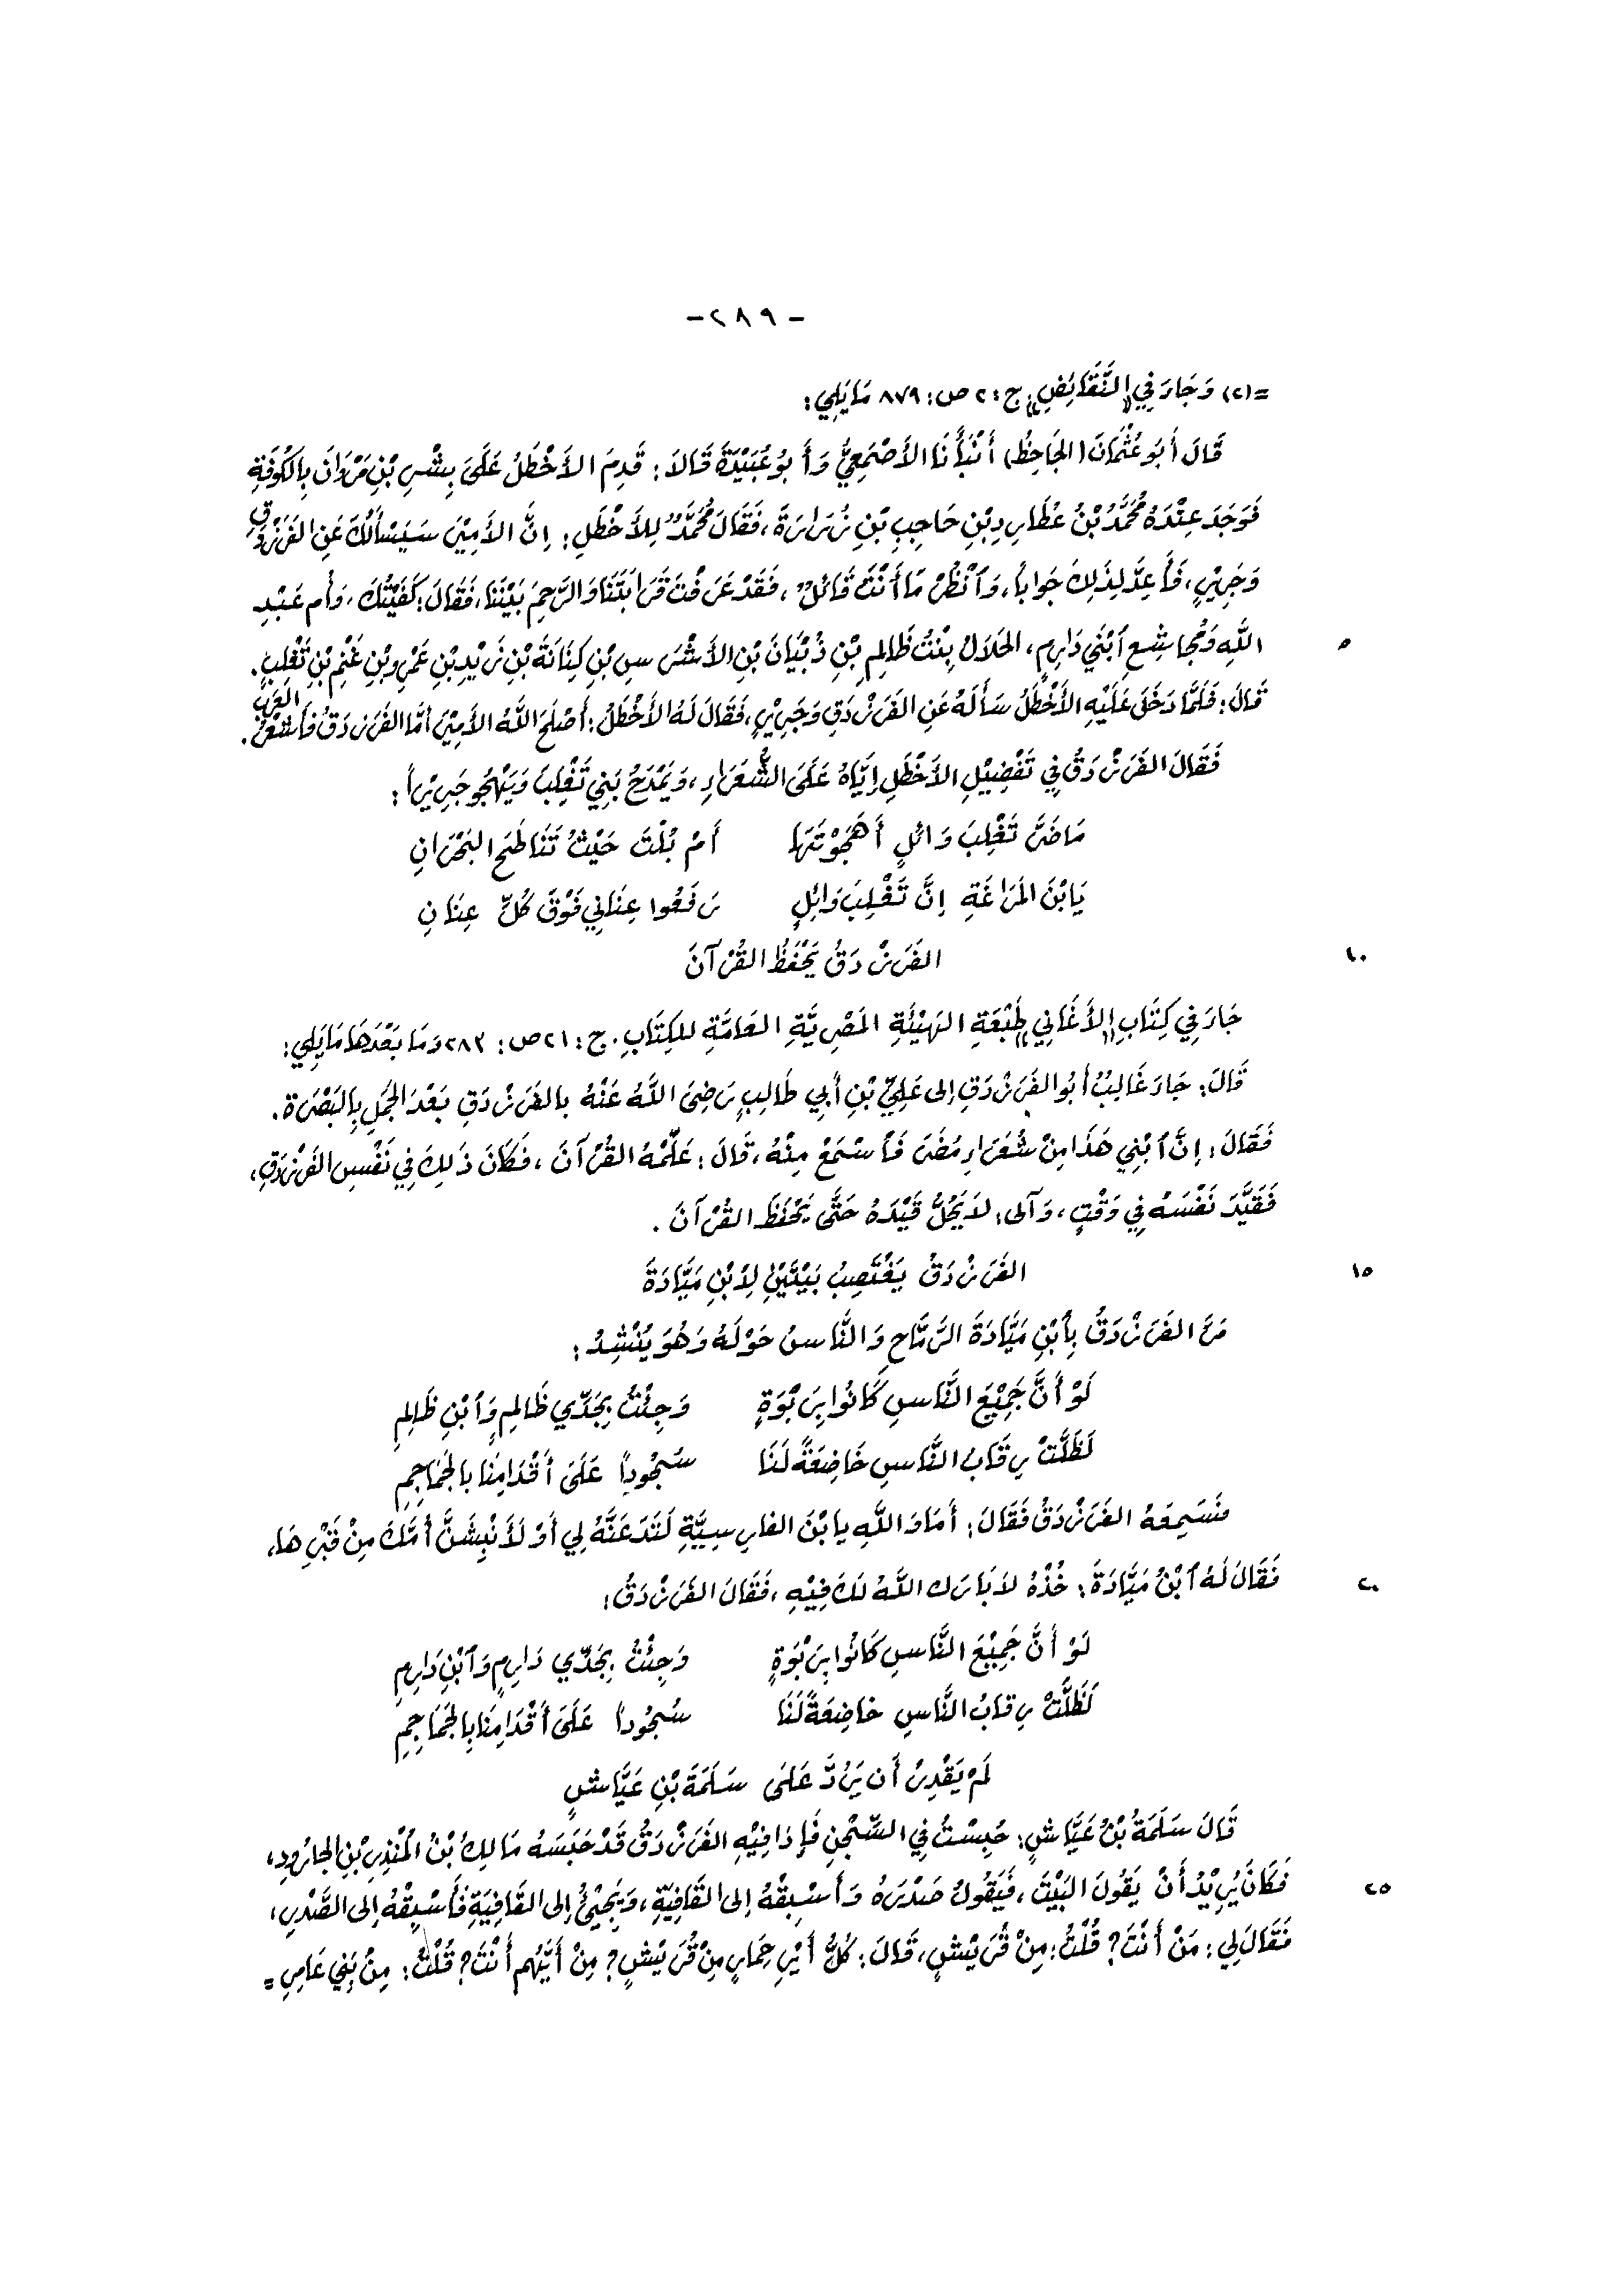 - ٢٨٩ -
= (٢) وَجَاءَ فِي «النَّقَائِضِ» ج: ٢ ص: ٨٧٩ مَايَلِي:
قَالَ أَبُو عُثْمَانَ (الجَاحِظُ) أَنْبَأَنَا الأَصْمَعِيُّ وَأَبُو عُبَيْدَةَ قَالاَ: قَدِمَ الأَخْطَلُ عَلَى بِشْرِ بْنِ مَرْوَانَ بِالكُوفَةِ
فَوَجَدَ عِنْدَهُ مُحَمَّدُ بْنُ عُطَارِدِ بْنِ حَاجِبِ بْنِ زُرَارَةَ، فَقَالَ مُحَمَّدٌ لِلأَخْطَلِ: إِنَّ الأَمِيْرَ سَيَسْأَلُكَ عَنِ الفَرَزْدَقِ
وَجَرِيْرٍ، فَأَعِدَّ لِذَلِكَ جَوَاباً، وَٱنْظُرْ مَا أَنْتَ قَائِلٌ، فَقَدْ عَرَفْتَ قَرَابَتَنَا وَالرَّحِمَ بَيْنَنَا، فَقَالَ: كَفَيْتُكَ، وَأُم عَبْدِ
٥ اللَّهِ وَمُجَاشِعٍ ٱبْنَي دَارِمٍ، الحَلاَلُ بِنْتُ ظَالِمِ بْنِ ذُبْيَانَ بْنِ الأَشْرَسِ بْنِ كِنَانَةَ بْنِ زَيْدِ بْنِ عَمْرِو بْنِ غَنْمِ بْنِ تَغْلِبَ.
قَالَ: فَلَمَّا دَخَلَ عَلَيْهِ الأَخْطَلُ سَأَلَهُ عَنِ الفَرَزْدَقِ وَجَرِيْرٍ، فَقَالَ لَهُ الأَخْطَلُ: أَصْلَحَ اللَّهُ الأَمِيْرَ أَمَّا الفَرَزْدَقُ فَأَشْعَرُ العَرَبِ.
فَقَالَ الفَرَزْدَقُ فِي تَفْضِيْلِ الأَخْطَلِ إِيَّاهُ عَلَى الشُّعَرَاءِ، وَيَمْدَحُ بَنِي تَغْلِبَ وَيَهْجُو جَرِيْراً:
مَا ضَرَّ تَغْلِبَ وَائِلٍ أَهَجَوْتَهَا أَمْ بُلْتَ حَيْثُ تَنَاطَحَ البَحْرَانِ
يَا بْنَ المَرَاغَةِ إِنَّ تَغْلِبَ وَائِلٍ رَفَعُوا عِنَانِي فَوْقَ كُلِّ عِنَانِ
١٠ الفَرَزْدَقُ يَحْفَظُ القُرْآنَ
جَاءَ فِي كِتَابِ «الأَغَانِي» طَبْعَةِ الهَيْئَةِ المَصْرِيَّةِ العَامَّةِ للكِتَابِ. ج: ٢١ ص: ٢٨٣ وَمَا بَعْدَهَا مَايَلِي:
قَالَ: جَاءَ غَالِبُ أَبُو الفَرَزْدَقِ إِلى عَلِيِّ بْنِ أَبِي طَالِبٍ رَضِيَ اللَّهُ عَنْهُ بالفَرَزْدَقِ بَعْدَ الجَمَلِ بِالبَصْرَة.
فَقَالَ: إِنَّ ٱبْنِي هَذَا مِنْ شُعَرَاءِ مُضَرَ فَٱسْمَعْ مِنْهُ، قَالَ: عَلِّمْهُ القُرْآنَ، فَكَانَ ذَلِكَ فِي نَفْسِ الفَرَزْدَقِ،
فَقَيَّدَ نَفْسَهُ فِي وَقْتٍ، وَآلى: لاَ يَحُلُّ قَيْدَهُ حَتَّى يَحْفَظَ القُرْآنَ.
١٥ الفَرَزْدَقُ يَغْتَصِبُ بَيْتَيْنِ لِٱبْنِ مَيَّادَةَ
مَرَّ الفَرَزْدَقُ بِٱبْنِ مَيَّادَةَ الرَّمَّاحِ وَالنَّاسُ حَوْلَهُ وَهُوَ يُنْشِدُ:
لَوْ أَنَّ جَمِيْعَ النَّاسِ كَانُوا بِرَبْوَةٍ وَجِئْتُ بِجَدِّي ظَالِمٍ وَٱبْنِ ظَالِمِ
لَظَلَّتْ رِقَابُ النَّاسِ خَاضِعَةً لَنَا سُجُوداً عَلَى أَقْدَامِنَا بالجَمَاجِمِ
فَسَمِعَهُ الفَرَزْدَقُ فَقَالَ: أَمَا وَاللَّهِ يا بْنَ الفارِسِيَّةِ لَتَدَعَنَّهُ لِي أَوْ لأَنْبِشَنَّ أُمَّكَ مِنْ قَبْرِهَا،
٢٠ فَقَالَ لَهُ ٱبْنُ مَيَّادَةَ: خُذْهُ لاَ بَارَك اللَّهُ لَكَ فِيْهِ، فَقَالَ الفَرَزْدَقُ:
لَوْ أَنَّ جَمِيْعَ النَّاسِ كَانُوا بِرَبْوَةٍ وَجِئْتُ بِجَدِّي دَارِمٍ وَٱبْنِ دَارِمِ
لَظَلَّتْ رِقابُ النَّاسِ خاضِعَةً لَنَا سُجُوداً عَلَى أَقْدَامِنَا بِالجَمَاجِمِ
لَمْ يَقْدِرْ أَن يَرُدَّ عَلَى سَلَمَةَ بْنِ عَيَّاشٍ
قَالَ سَلَمَةُ بْنُ عَيَّاشٍ: حُبِسْتُ فِي السِّجْنِ فَإِذَا فِيْهِ الفَرَزْدَقُ قَدْ حَبَسَهُ مَالِكُ بْنُ المُنْذِرِ بْنِ الجارُودِ،
٢٥ فَكَانَ يُرِيْدُ أَنْ يَقُولَ البَيْتَ، فَيَقُولُ صَدْرَهُ وَأَسْبِقُهُ إِلى القَافِيَةِ، وَيَجِيْئُ إِلى القَافِيَةِ فَأَسْبِقُهُ إِلى الصَّدْرِ،
فَقَالَ لِي: مَنْ أَنْتَ؟ قُلْتُ: مِنْ قُرَيْشٍ، قَالَ: كُلُّ أَيْرِ حِمَارٍ مِنْ قُرَيْشٍ؟ مِنْ أَيِّهِم أَنْتَ؟ قُلْتُ: مِنْ بَنِي عَامِرِ =